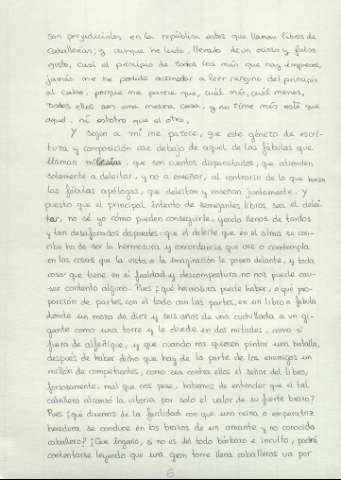 son perjudiciales en la república estos que llaman libros de
caballerías; y aunque he leído, llevado de un ocioso y falso
gusto, casi el principio de todos los más que hay impresos,
jamás me he podido acomodar a leer ninguno del principio
al cabo, porque me parece que, cuál más, cuál menos,
todos ellos son una mesma cosa, y no tiene más éste que
aquél, ni estotro que el otro.
Y según a mí me parece, que este género de escri-
tura y composición cae debajo de aquel de las fábulas que
llaman milesias, que son cuentos disparatados, que atienden
solamente a deleitar, y no a enseñar, al contrario de lo que hacen
las fábulas apólogas, que deleitan y enseñan juntamente. Y
puesto que el principal intento de semejantes libros sea el delei-
tar, no sé yo cómo pueden conseguirle, yendo llenos de tantos
y tan desaforados disparates: que el deleite que en el alma se con-
cibe ha de ser la hermosura y concordancia que ose o contempla
en las cosas que la vista o la imaginación le ponen delante, y toda
cosa que tiene en sí fealdad y descompostura no nos puede cau-
sar contento alguno. Pues ¿qué hermosura puede haber, o qué pro-
porción de partes con el todo con las partes, en un libro o fábula
donde un mozo de diez y seis años da una cuchillada a un gi-
gante como una torre y le divide en dos mitades, como si
fuera de alfeñique, y que cuando nos quieren pintar una batalla,
después de haber dicho que hay de la parte de los enemigos un
millón de competientes, como sea contra ellos el señor del libro,
forzosamente, mal que nos pese, habemos de entender que el tal
caballero alcanzó la vitoria por solo el valor de su fuerte brazo?
Pues ¿qué diremos de la facilidad con que una reina o emperatriz
heredera se conduce en los brazos de un amante y no conocido
caballero? ¿Qué ingenio, si no es del todo bárbaro e inculto, podrá
contentarse leyendo que una gran torre llena caballeros va por
6